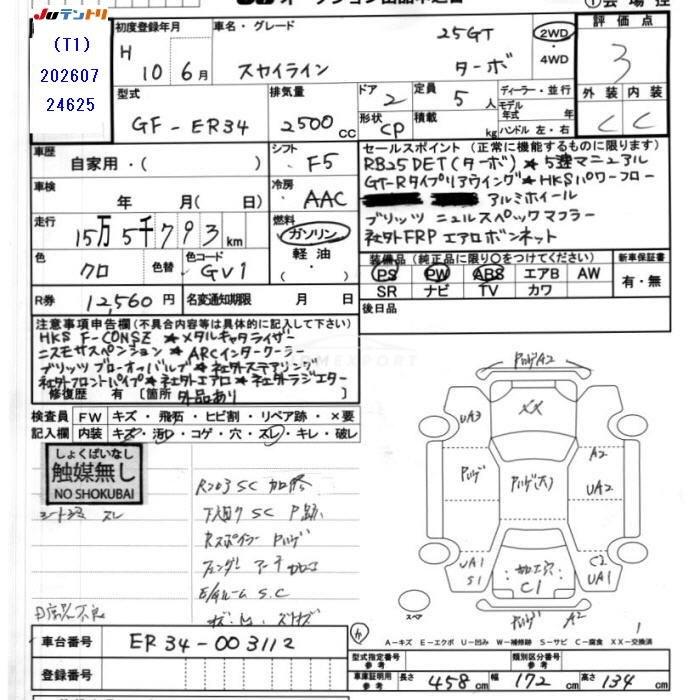 JUテントリ
(T1)
202607
24625
初度登録年月
H 10 6月
車名・グレード
25GT
スカイライン ターボ
2WD
4WD
評価点
3
外装 内装
C C
型式
GF-ER34
排気量
2500cc
ドア
2
形状
CP
定員
5人
積載
kg
ディーラー・並行
モデル年式 年
ハンドル 左・右
車歴
自家用・( )
シフト
F5
車検
年 月( 日)
冷房
AAC
走行
15万5千793km
燃料
ガソリン
軽油
色
クロ
色替
色コード
GV1
R券
12,560円
名変通知期限 月 日
セールスポイント (正常に機能するものに限ります)
RB25DET(ターボ)★5速マニュアル
GT-Rタイプリアウイング★HKSパワーフロー
アルミホイール
ブリッツ ニュルスペックマフラー
社外FRP エアロボンネット
装備品 (純正品に限り○をつけてください)
PS PW ABS エアB AW
SR ナビ TV カワ
新車保証書
有・無
後日品
注意事項申告欄(不具合内容等は具体的に記入して下さい)
HKS F-CONSZ ★メタルキャタライザー
ニスモサスペンション ★ARCインタークーラー
ブリッツ ブローオフバルブ★社外ステアリング
社外フロントパイプ★社外エアロ★社外ラジエター
修復歴 有 [箇所 外品あり]
検査員記入欄
FW キズ・飛石・ヒビ割・リペア跡・×要
内装 キズ・汚レ・コゲ・穴・スレ・キレ・破レ
しょくばいなし
触媒無し
NO SHOKUBAI
下廻りSC P跡
Rスポイラー
S.C
XX
パリゲA2
UA3
A2
UA2
UA1
S1
加工穴
C1
C2
UA1
A2
スペア
A-キズ E-エクボ U-凹み W-補修跡 S-サビ C-腐食 XX-交換済
車台番号
ER34-003112
登録番号
型式指定番号
参考
類別区分番号
参考
車庫証明用
参考
長さ 458cm 幅 172cm 高さ 134cm